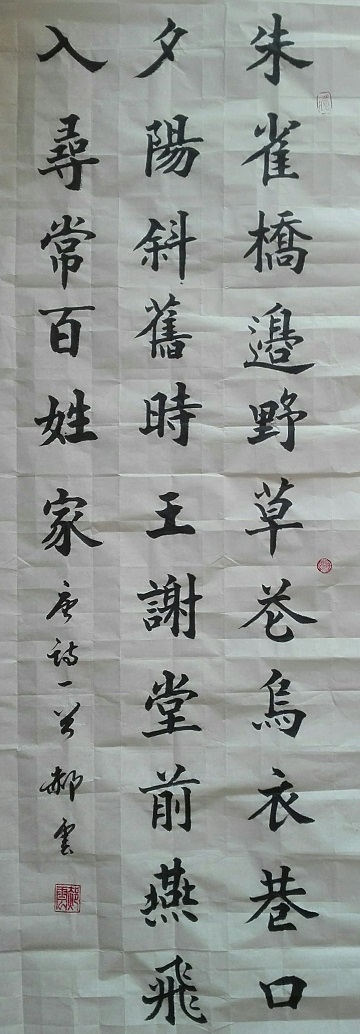 朱雀橋邊野草花烏衣巷口
夕陽斜舊時王謝堂前燕飛
入尋常百姓家
唐詩一首 郝雲